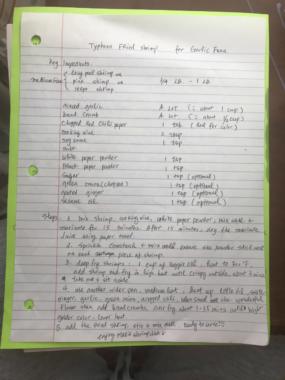 Typhoon Fried Shrimp for Garlic Fans
key Ingredients
easy peel shrimp or
medium size pink shrimp or 3/4 LB - 1 LB
shrimp
minced garlic A LOT (= about 1 cup)
bread crumb A LOT (= about 1/2 cup)
Chopped Red Chili paper 1 tsp (Red for color)
cooking wine
soy sauce 1 tsp
salt
white paper powder 1 tsp
black paper powder 1 tsp
Sugar 1 tsp (optional)
green onion (chopped) 1 tsp (optional)
grated ginger 1 tsp (optional)
sesame oil 1 tsp (optional)
Steps 1. mix shrimp, cooking wine, white paper powder, mix well &
marinate for 15 minutes. After 15 minutes, dry the marinate
juice using paper towel
2. sprinkle Cornstarch & mix well, ensure the powder stick well
on each piece of shrimp.
3. deep fry shrimps: 1 cup of veggie oil, heat to 325 °F,
add shrimp and fry in high heat until crispy outside, about 3 mins
take out & set aside
4. use another wider pan, medium heat, heat up little oil, sauté
ginger, garlic, green onion, chopped chili, when smell wonderful
flavor then add bread crumbs, stir fry about 1-2 mins until
golden color. lower heat
5. add the fried shrimp, stir & mix well. Ready to serve!!
enjoy